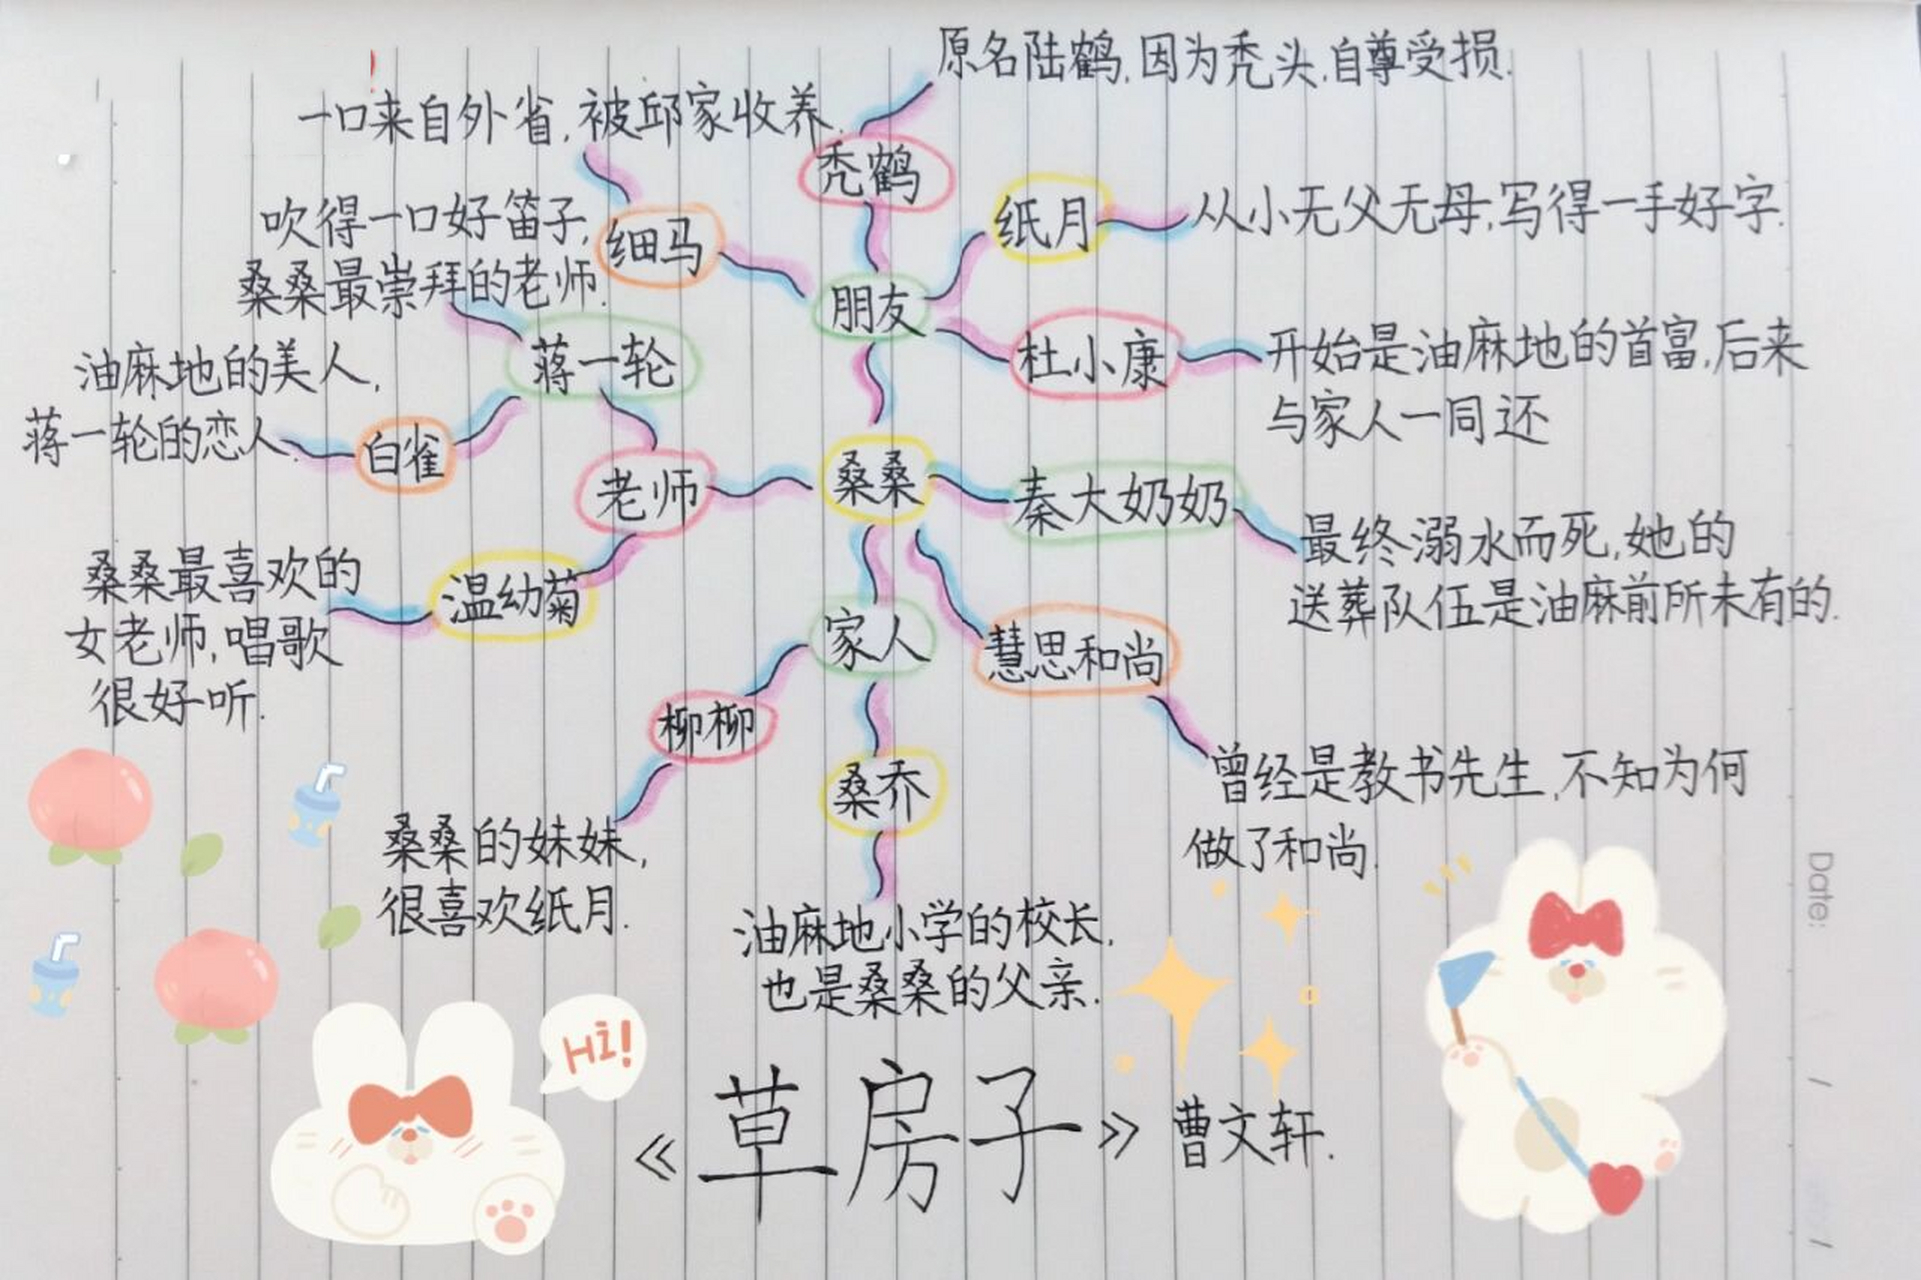 原名陆鹤,因为秃头,自尊受损.
一口来自外省,被邱家收养.
秃鹤
纸月
从小无父无母,写得一手好字.
吹得一口好笛子,
桑桑最崇拜的老师.
细马
朋友
杜小康
开始是油麻地的首富,后来
与家人一同还
蒋一轮
油麻地的美人,
蒋一轮的恋人.
白雀
老师
桑桑
秦大奶奶
最终溺水而死,她的
送葬队伍是油麻前所未有的.
桑桑最喜欢的
女老师,唱歌
很好听.
温幼菊
家人
慧思和尚
曾经是教书先生,不知为何
做了和尚.
柳柳
桑桑的妹妹,
很喜欢纸月.
桑乔
油麻地小学的校长,
也是桑桑的父亲.
Hi!
《草房子》 曹文轩.
Date: / /